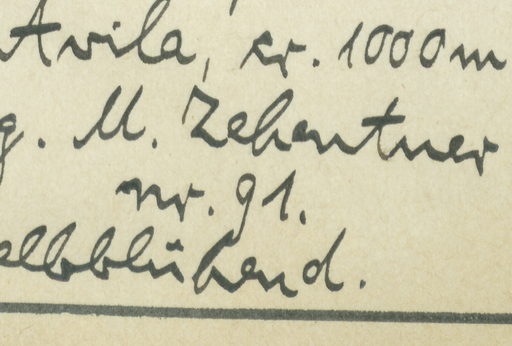 Avila, cr. 1000m
g. M. Zehentner
nr. 91.
elbblühend.